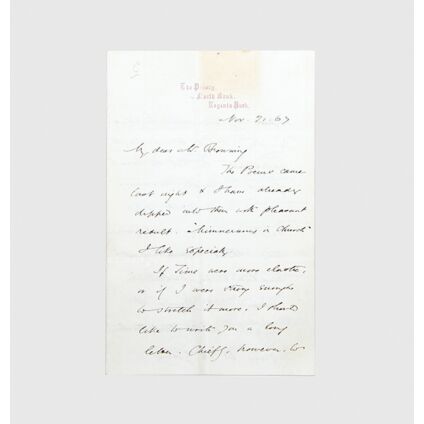 The Priory,
North Bank,
Regents Park.
Nov. 21. 67
My dear Mr Browning
The Poems came
last night & I have already
dipped into them with pleasant
result. "Mimnermus in Church"
I like especially.
If Time were more elastic,
or if I were strong enough
to stretch it more, I should
like to write you a long
letter. Chiefly, however, to